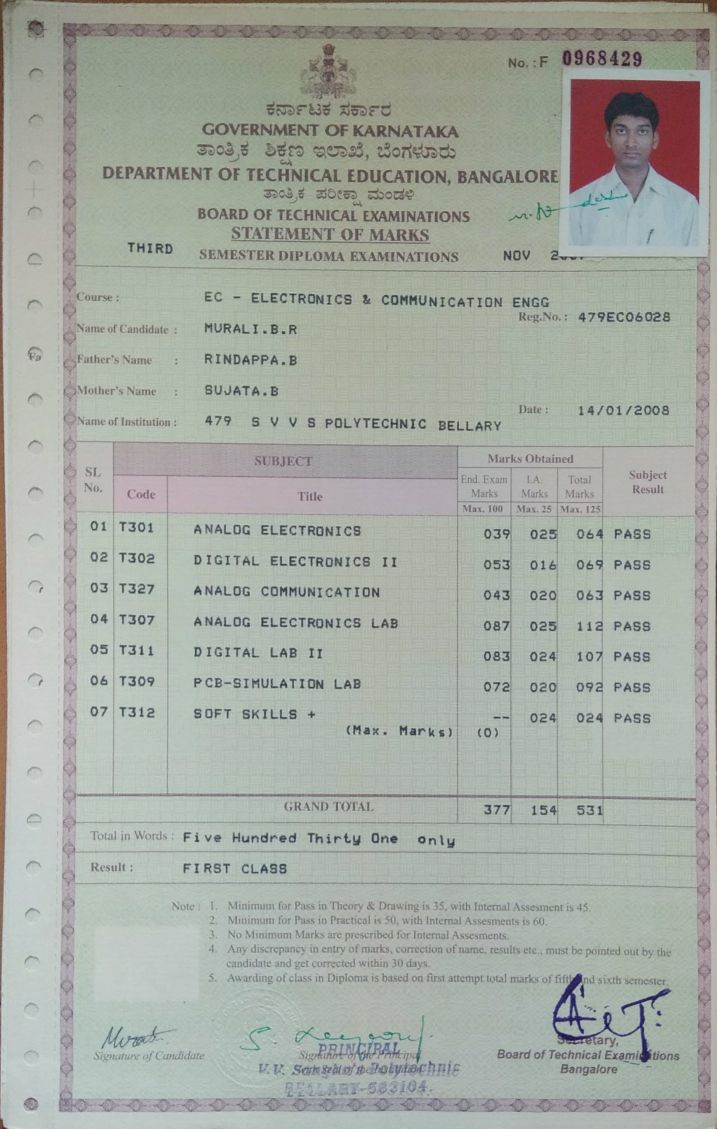 No. : F 0968429
ಕರ್ನಾಟಕ ಸರ್ಕಾರ
GOVERNMENT OF KARNATAKA
ತಾಂತ್ರಿಕ ಶಿಕ್ಷಣ ಇಲಾಖೆ, ಬೆಂಗಳೂರು
DEPARTMENT OF TECHNICAL EDUCATION, BANGALORE
ತಾಂತ್ರಿಕ ಪರೀಕ್ಷಾ ಮಂಡಳಿ
BOARD OF TECHNICAL EXAMINATIONS
STATEMENT OF MARKS
THIRD SEMESTER DIPLOMA EXAMINATIONS NOV
Course : EC - ELECTRONICS & COMMUNICATION ENGG
Reg.No. : 479EC06028
Name of Candidate : MURALI.B.R
Father's Name : RINDAPPA.B
Mother's Name : SUJATA.B
Date : 14/01/2008
Name of Institution : 479 S V V S POLYTECHNIC BELLARY
SL No. SUBJECT Marks Obtained Subject Result
Code Title End. Exam Marks I.A. Marks Total Marks
Max. 100 Max. 25 Max. 125
01 T301 ANALOG ELECTRONICS 039 025 064 PASS
02 T302 DIGITAL ELECTRONICS II 053 016 069 PASS
03 T327 ANALOG COMMUNICATION 043 020 063 PASS
04 T307 ANALOG ELECTRONICS LAB 087 025 112 PASS
05 T311 DIGITAL LAB II 083 024 107 PASS
06 T309 PCB-SIMULATION LAB 072 020 092 PASS
07 T312 SOFT SKILLS + -- 024 024 PASS
(Max. Marks) (0)
GRAND TOTAL 377 154 531
Total in Words : Five Hundred Thirty One only
Result : FIRST CLASS
Note : 1. Minimum for Pass in Theory & Drawing is 35, with Internal Assesment is 45.
2. Minimum for Pass in Practical is 50, with Internal Assesments is 60.
3. No Minimum Marks are prescribed for Internal Assesments.
4. Any discrepancy in entry of marks, correction of name, results etc., must be pointed out by the
candidate and get corrected within 30 days.
5. Awarding of class in Diploma is based on first attempt total marks of fifth and sixth semester.
Signature of Candidate
Signature of the Principal
PRINCIPAL
V.V. Sangha's Polytechnic
BELLARY-583104.
Secretary,
Board of Technical Examinations
Bangalore